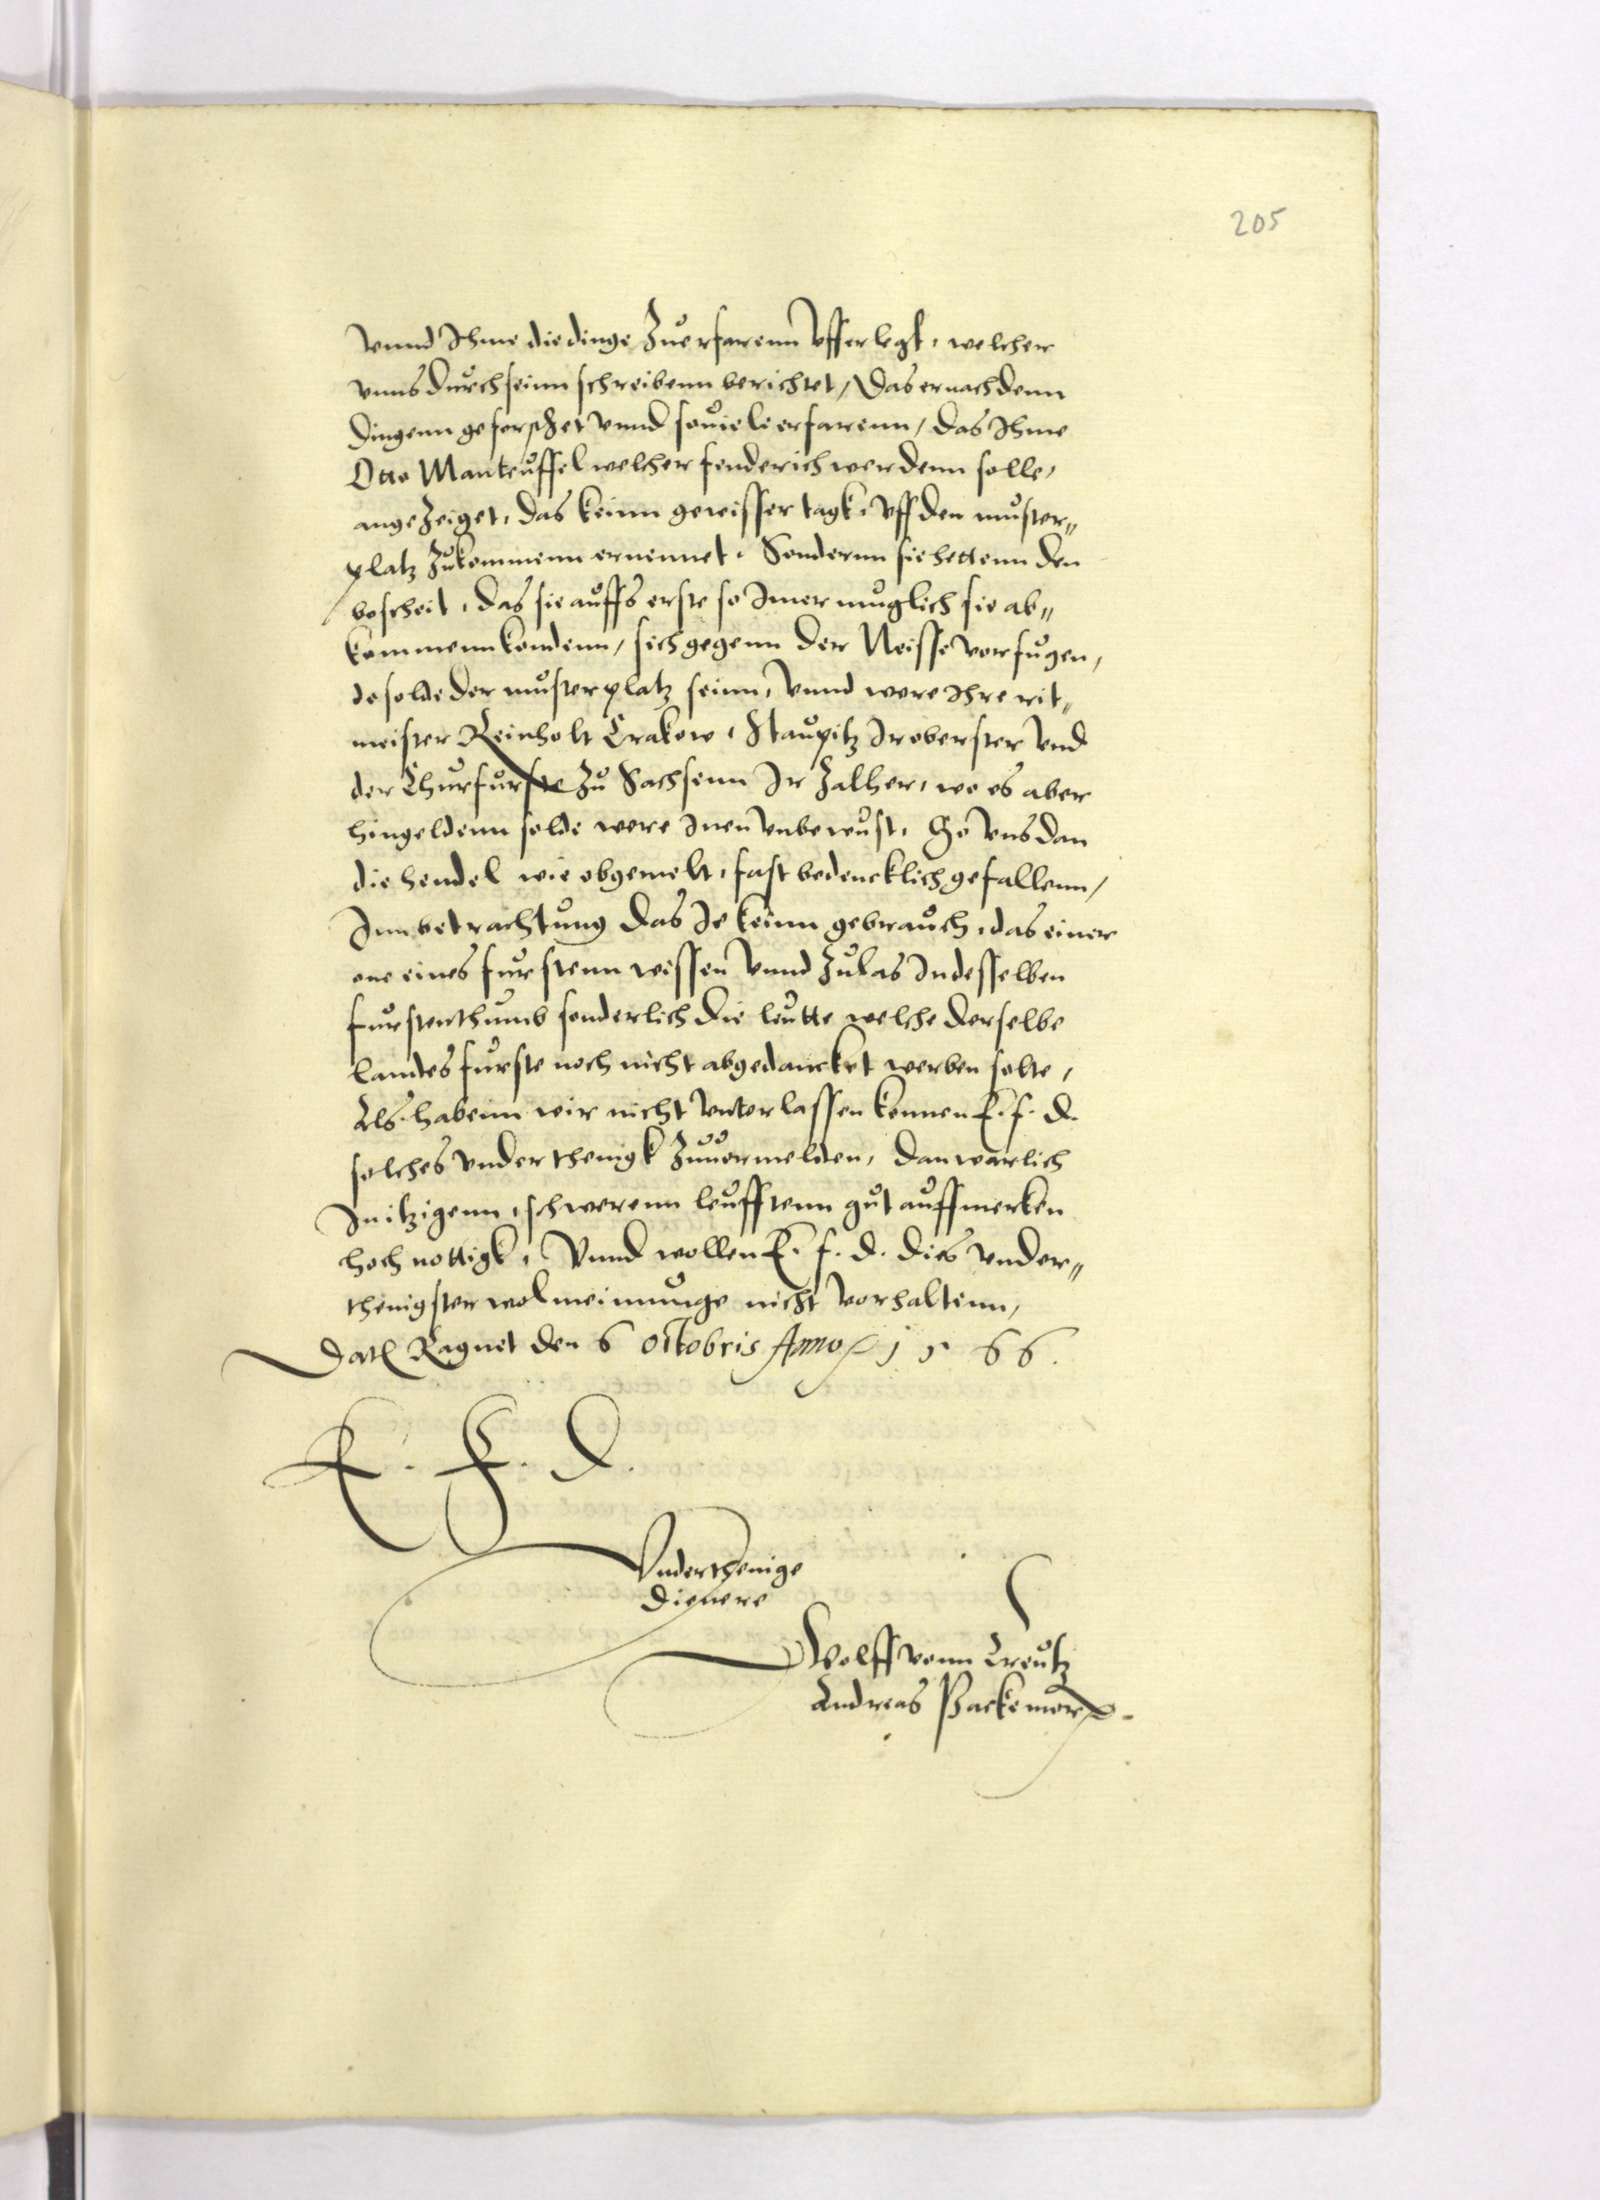 205
Vnnd Ihme die dinge Zuerfarenn Vfferlegt, welcher
vnns durch seinn schreibenn berichtet, Das er nach denn
dingenn geforschet vnnd souiele erfarenn, das Ihme
Otto Manteuffel welcher fenderich werdenn solle,
angeZeiget, das keinn gewisser tagk, Vff den muster„
platz Zukommenn ernennet, Sondernn sie hettenn den
bescheit, das sie auffs erste so Imer muglich sie ab„
kommenn kondenn, sich gegenn der Neisse vorfugen,
do solde der musterplatz seinn, Vnnd were Ihre rit„
meister Reinholt Crakow, Staupitz Ir oberster Vnd
der Churfurste Zu Sachsenn Ir Zalher, wo es aber
hingeldenn solde were Inen vnbewust, So vns dan
die hendel wie obgemelt, fast bedencklich gefallenn,
Inn betrachtung das Je keinn gebrauch, das einer
one eines furstenn wissen Vnnd Zulas In desselben
furstenthumb sonderlich die leutte welche derselbe
landes furste noch nicht abgedancket werben solte,
Als habenn wir nicht vnterlassen konnen E. f. d.
solches vnderthenigk Zuuormelden, dan warlich
In itzigenn, schwerenn leufftenn gut auffmerken
hoch nottigk, Vnnd wollen E. f. d. dies vnder„
thenigster wolmeinunge nicht vorhaltenn,
Dat Ragnet den 6 octobris Anno 1566.
E. F. D.
Vnderthenige
dienere
Wolff vonn Creutz
Andreas Packemor